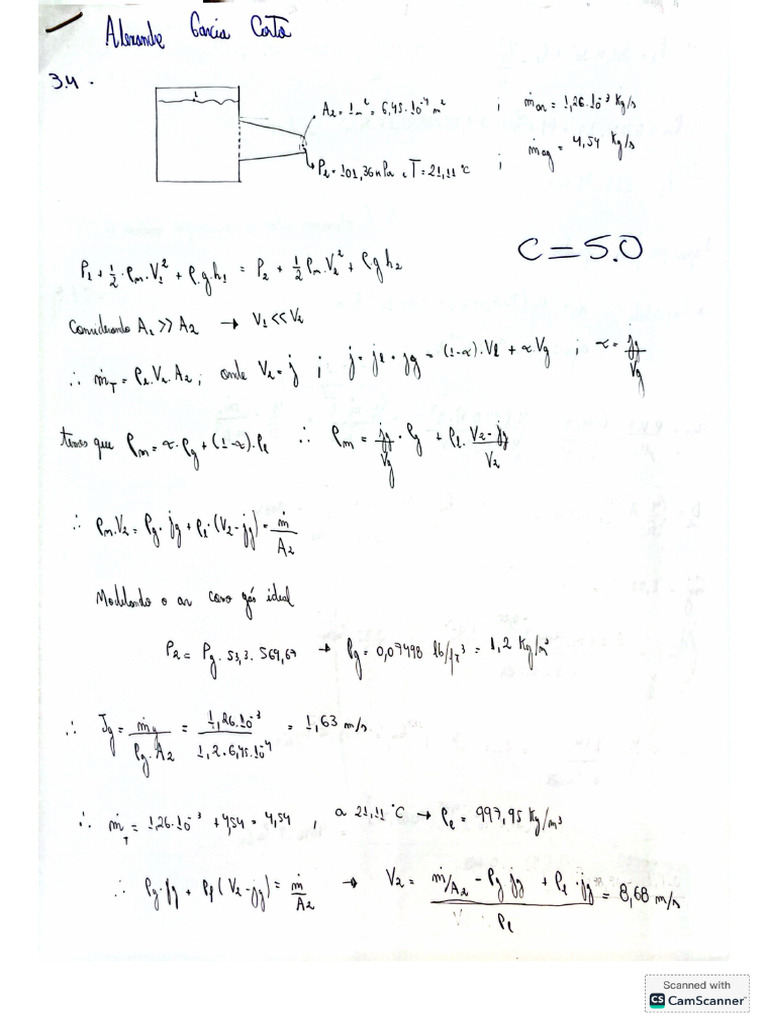 Alexandre Garcia Costa
3.4.
1
A₂ = 1 in² = 6,45.10⁻⁴ m² ; ṁar = 1,26.10⁻³ Kg/s
P₂ = 101,36 kPa , T = 21,11 °C ; ṁag = 4,54 Kg/s
C = 5.0
P₁ + 1/2 . ρm . V₁² + ρ.g.h₁ = P₂ + 1/2 ρm . V₂² + ρg h₂
Considerando A₁ >> A₂ → V₁ << V₂
∴ ṁT = ρ₂.V₂.A₂ ; onde V₂ = j ; j = jl + jg = (1-α).Vl + α.Vg ; α = jg/Vg
temos que ρm = α.ρg + (1-α).ρl ∴ ρm = jg/Vg . ρg + ρl . (V₂ - jg)/V₂
∴ ρm.V₂ = ρg . jg + ρl.(V₂ - jg) = ṁ/A₂
Modelando o ar como gás ideal
P₂ = ρg . 53,3 . 569,67 → ρg = 0,07498 lb/ft³ = 1,2 Kg/m³
∴ Jg = ṁg/(ρg.A₂) = 1,26.10⁻³/(1,2.6,45.10⁻⁴) = 1,63 m/s
∴ ṁT = 1,26.10⁻³ + 4,54 = 4,54 , a 21,11 °C → ρl = 997,95 Kg/m³
∴ ρg.jg + ρl (V₂ - jg) = ṁ/A₂ → V₂ = (ṁ/A₂ - ρg jg + ρl . jg)/ρl = 8,68 m/s
Scanned with
CS CamScanner